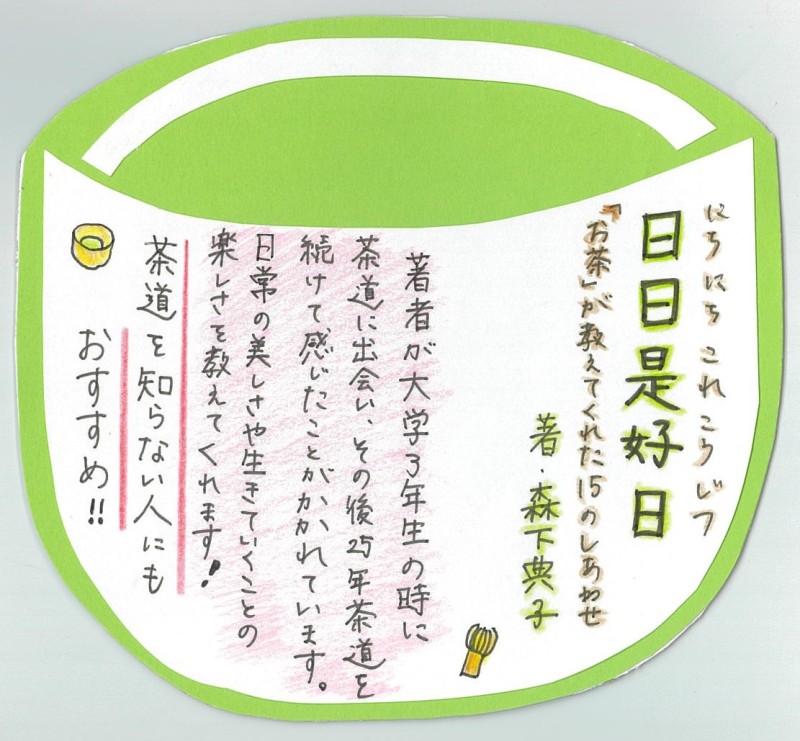 にちにちこれこうじつ
日日是好日
「お茶」が教えてくれた15のしあわせ
著・森下典子
著者が大学3年生の時に
茶道に出会い、その後25年茶道を
続けて感じたことがかかれています。
日常の美しさや生きていくことの
楽しさを教えてくれます!
茶道を知らない人にも
おすすめ!!